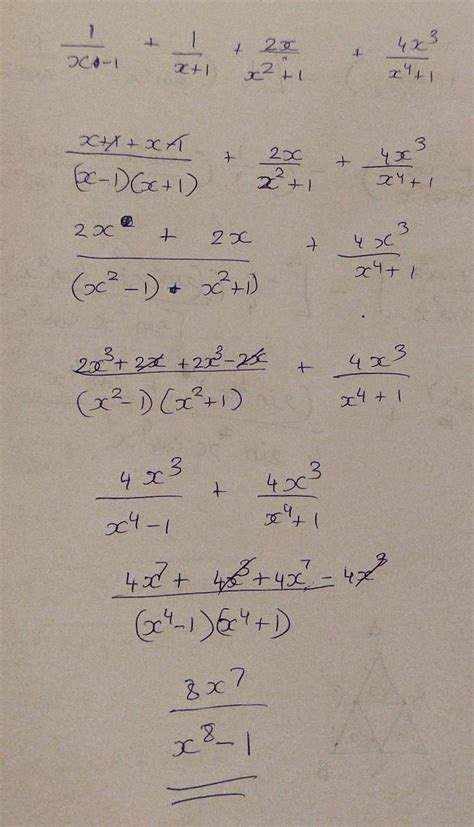 1/(x-1) + 1/(x+1) + 2x/(x²+1) + 4x³/(x⁴+1)
(x+1+x-1)/((x-1)(x+1)) + 2x/(x²+1) + 4x³/(x⁴+1)
2x/(x²-1) + 2x/(x²+1) + 4x³/(x⁴+1)
(2x³+2x+2x³-2x)/((x²-1)(x²+1)) + 4x³/(x⁴+1)
4x³/(x⁴-1) + 4x³/(x⁴+1)
(4x⁷+4x³+4x⁷-4x³)/((x⁴-1)(x⁴+1))
8x⁷/(x⁸-1)